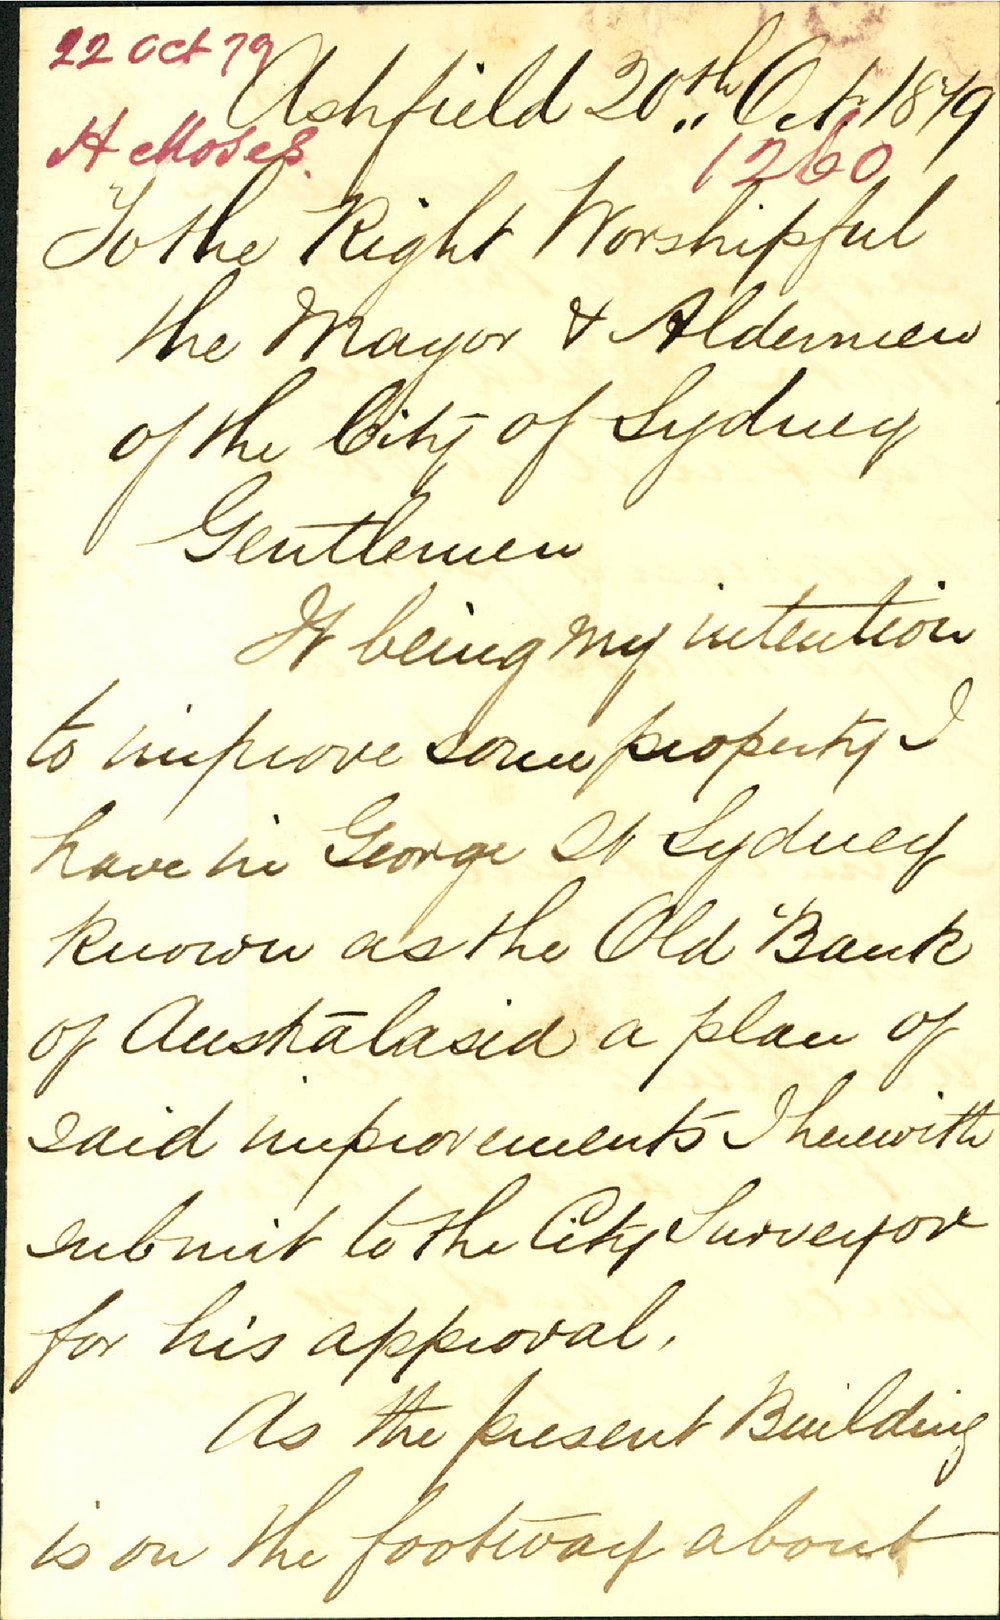 22 Oct 79
Ashfield 20th Oct. 1879
H Moses.
1260
To the Right Worshipful
the Mayor & Aldermen
of the City of Sydney
Gentlemen
It being my intention
to improve some property I
have in George St Sydney
known as the Old Bank
of Australasia a plan of
said improvements I herewith
submit to the City Surveyor
for his approval.
As the present Building
is on the footway about